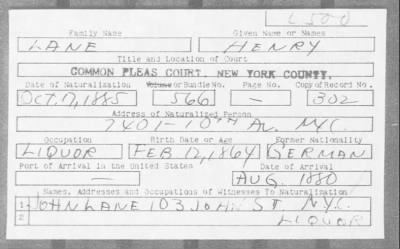 L 500
Family Name Given Name or Names
LANE HENRY
Title and Location of Court
COMMON PLEAS COURT, NEW YORK COUNTY.
Date of Naturalization Volume or Bundle No. Page No. Copy of Record No.
OCT. 17, 1885 566 — 302
Address of Naturalized Person
2401-10TH AV. N.Y.C.
Occupation Birth Date or Age Former Nationality
LIQUOR FEB 12, 1864 GERMAN
Port of Arrival in the United States Date of Arrival
— AUG. 1880
Names, Addresses and Occupations of Witnesses To Naturalization
1 JOHN LANE 103 JOHN ST. N.Y.C.
2 LIQUOR